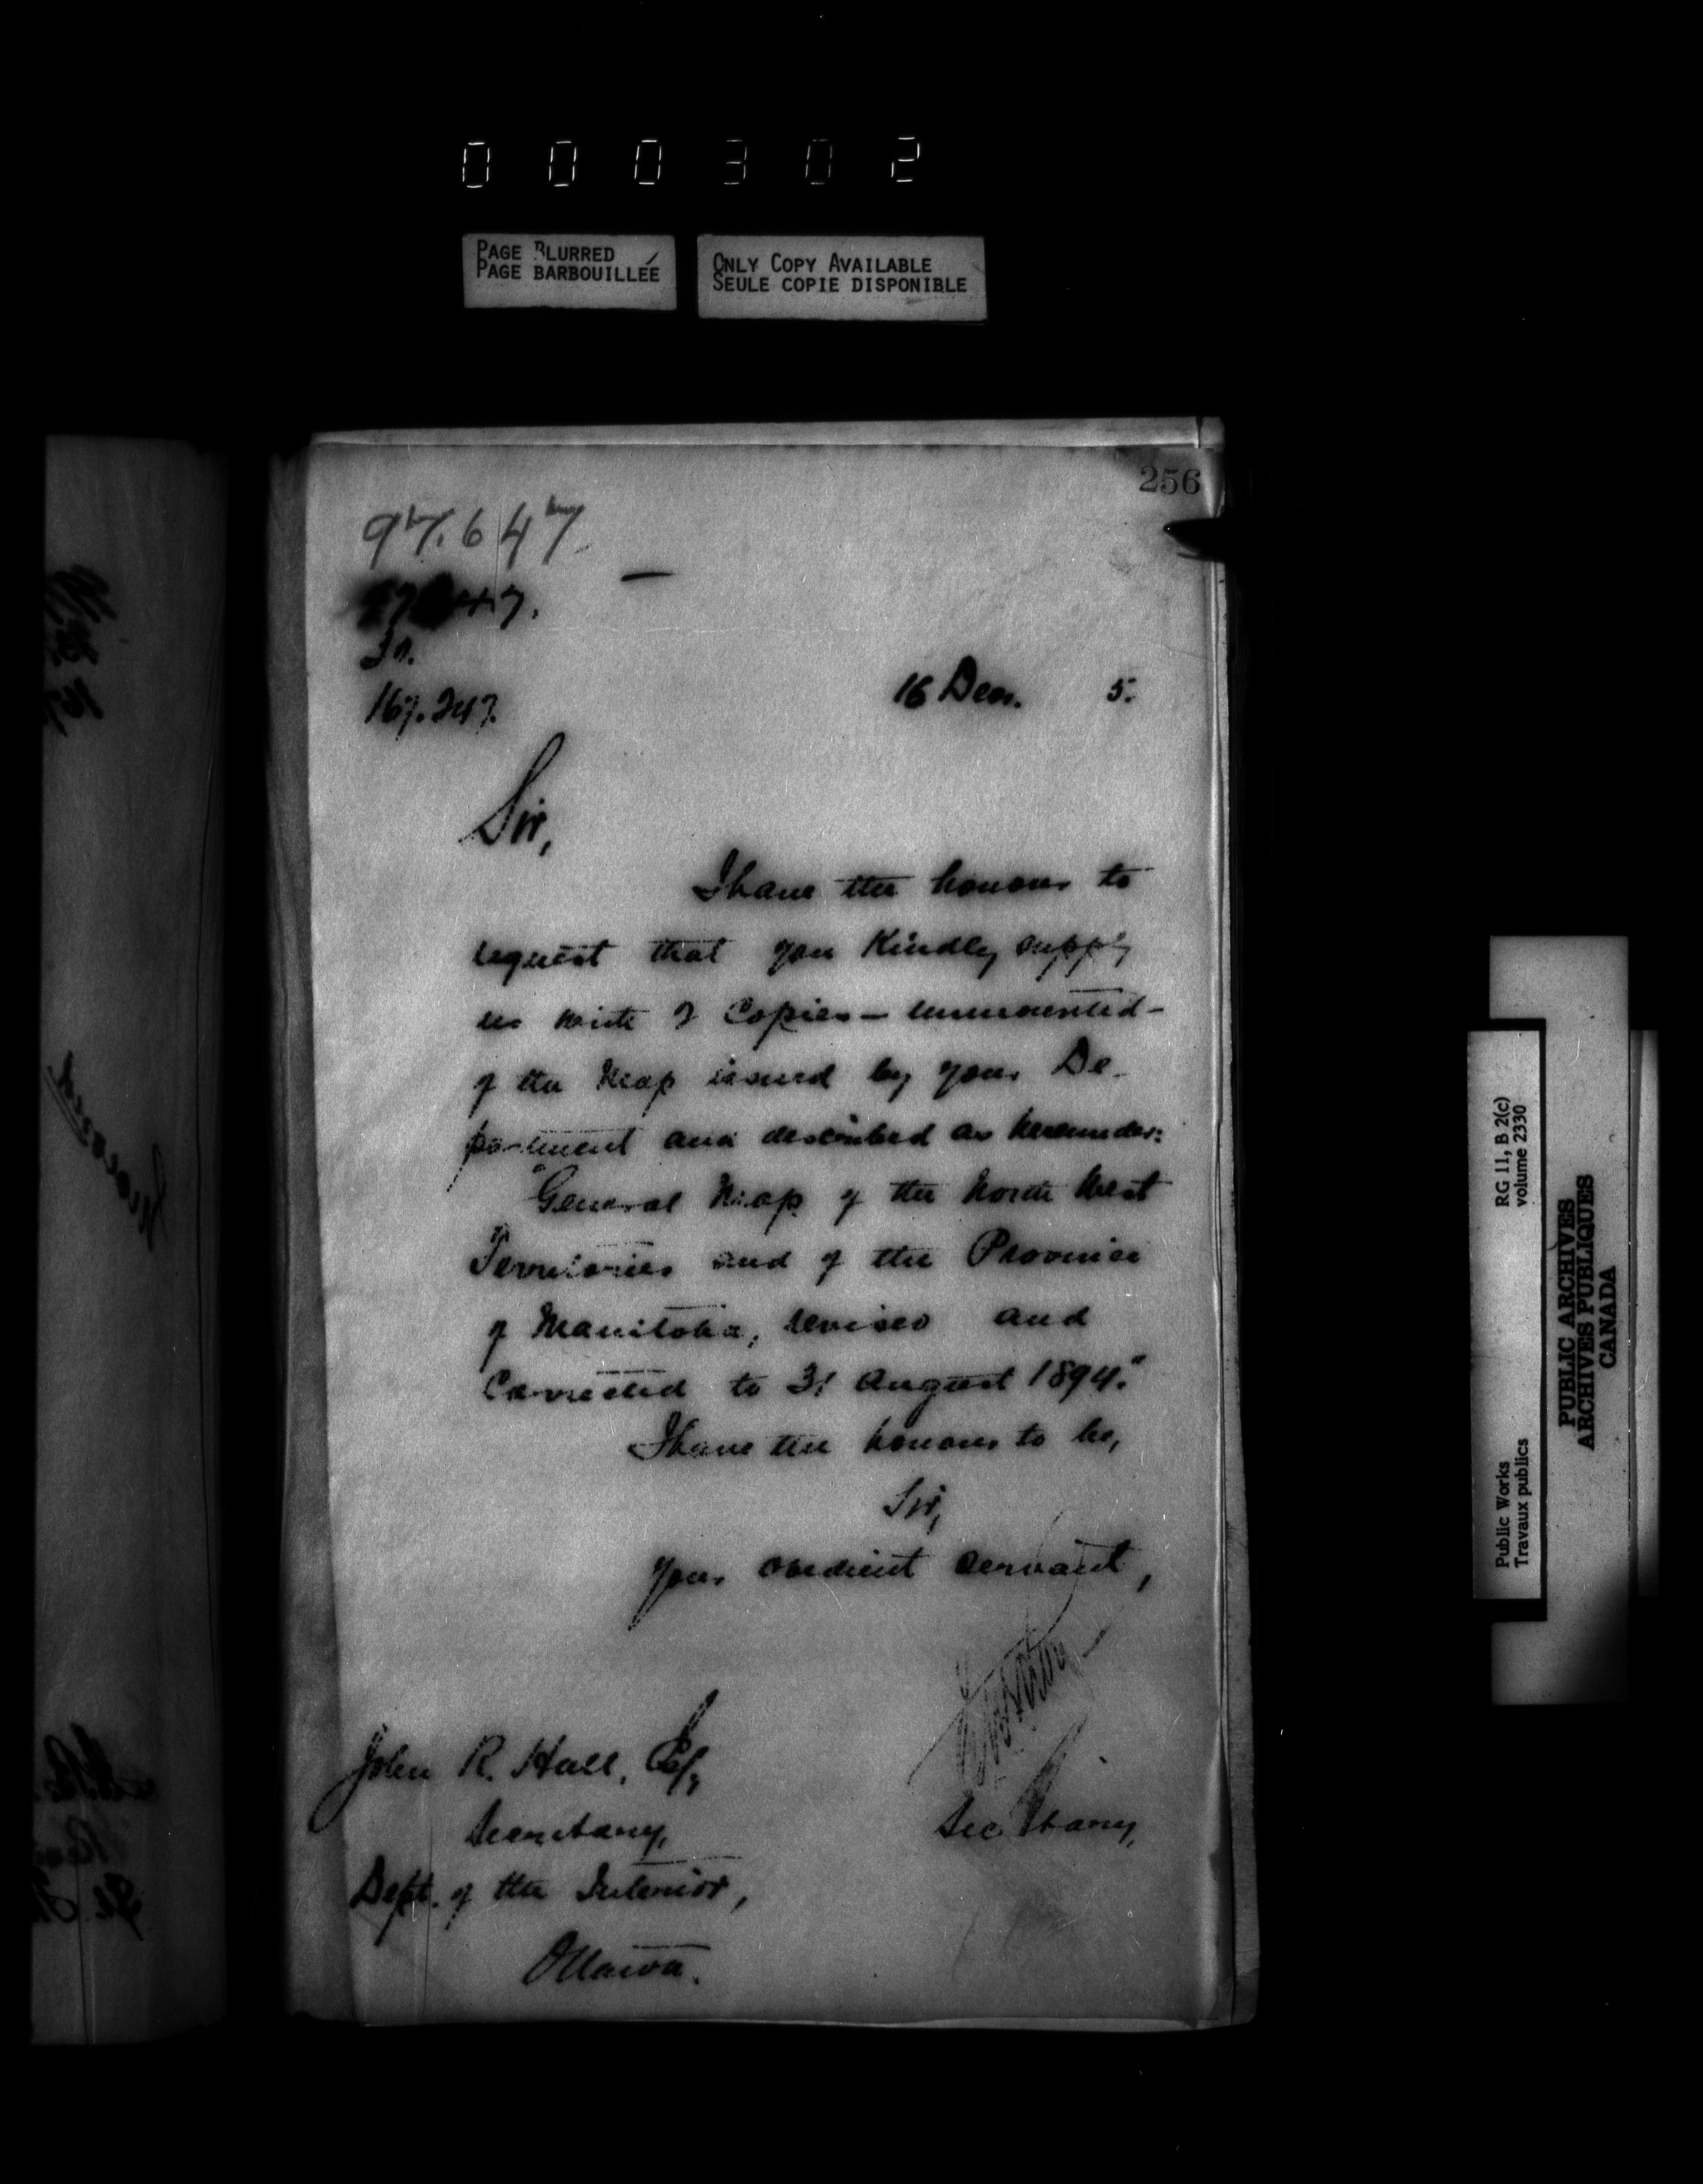 000302
PAGE BLURRED
PAGE BARBOUILLÉE
ONLY COPY AVAILABLE
SEULE COPIE DISPONIBLE
256
97.647
47.
167.247.
16 Decr. 5.
Sir,
I have the honour to
request that you kindly supply
us with 2 copies – unmounted –
of the Map issued by your De-
partment and described as hereunder:
"General Map of the North West
Territories and of the Province
of Manitoba, revised and
corrected to 31 August 1894."
I have the honour to be,
Sir,
Your obedient servant,
John R. Hall, Esq,
Secretary,
Secretary,
Dept. of the Interior,
Ottawa.
Public Works
Travaux publics
RG 11, B 2(c)
volume 2330
PUBLIC ARCHIVES
ARCHIVES PUBLIQUES
CANADA